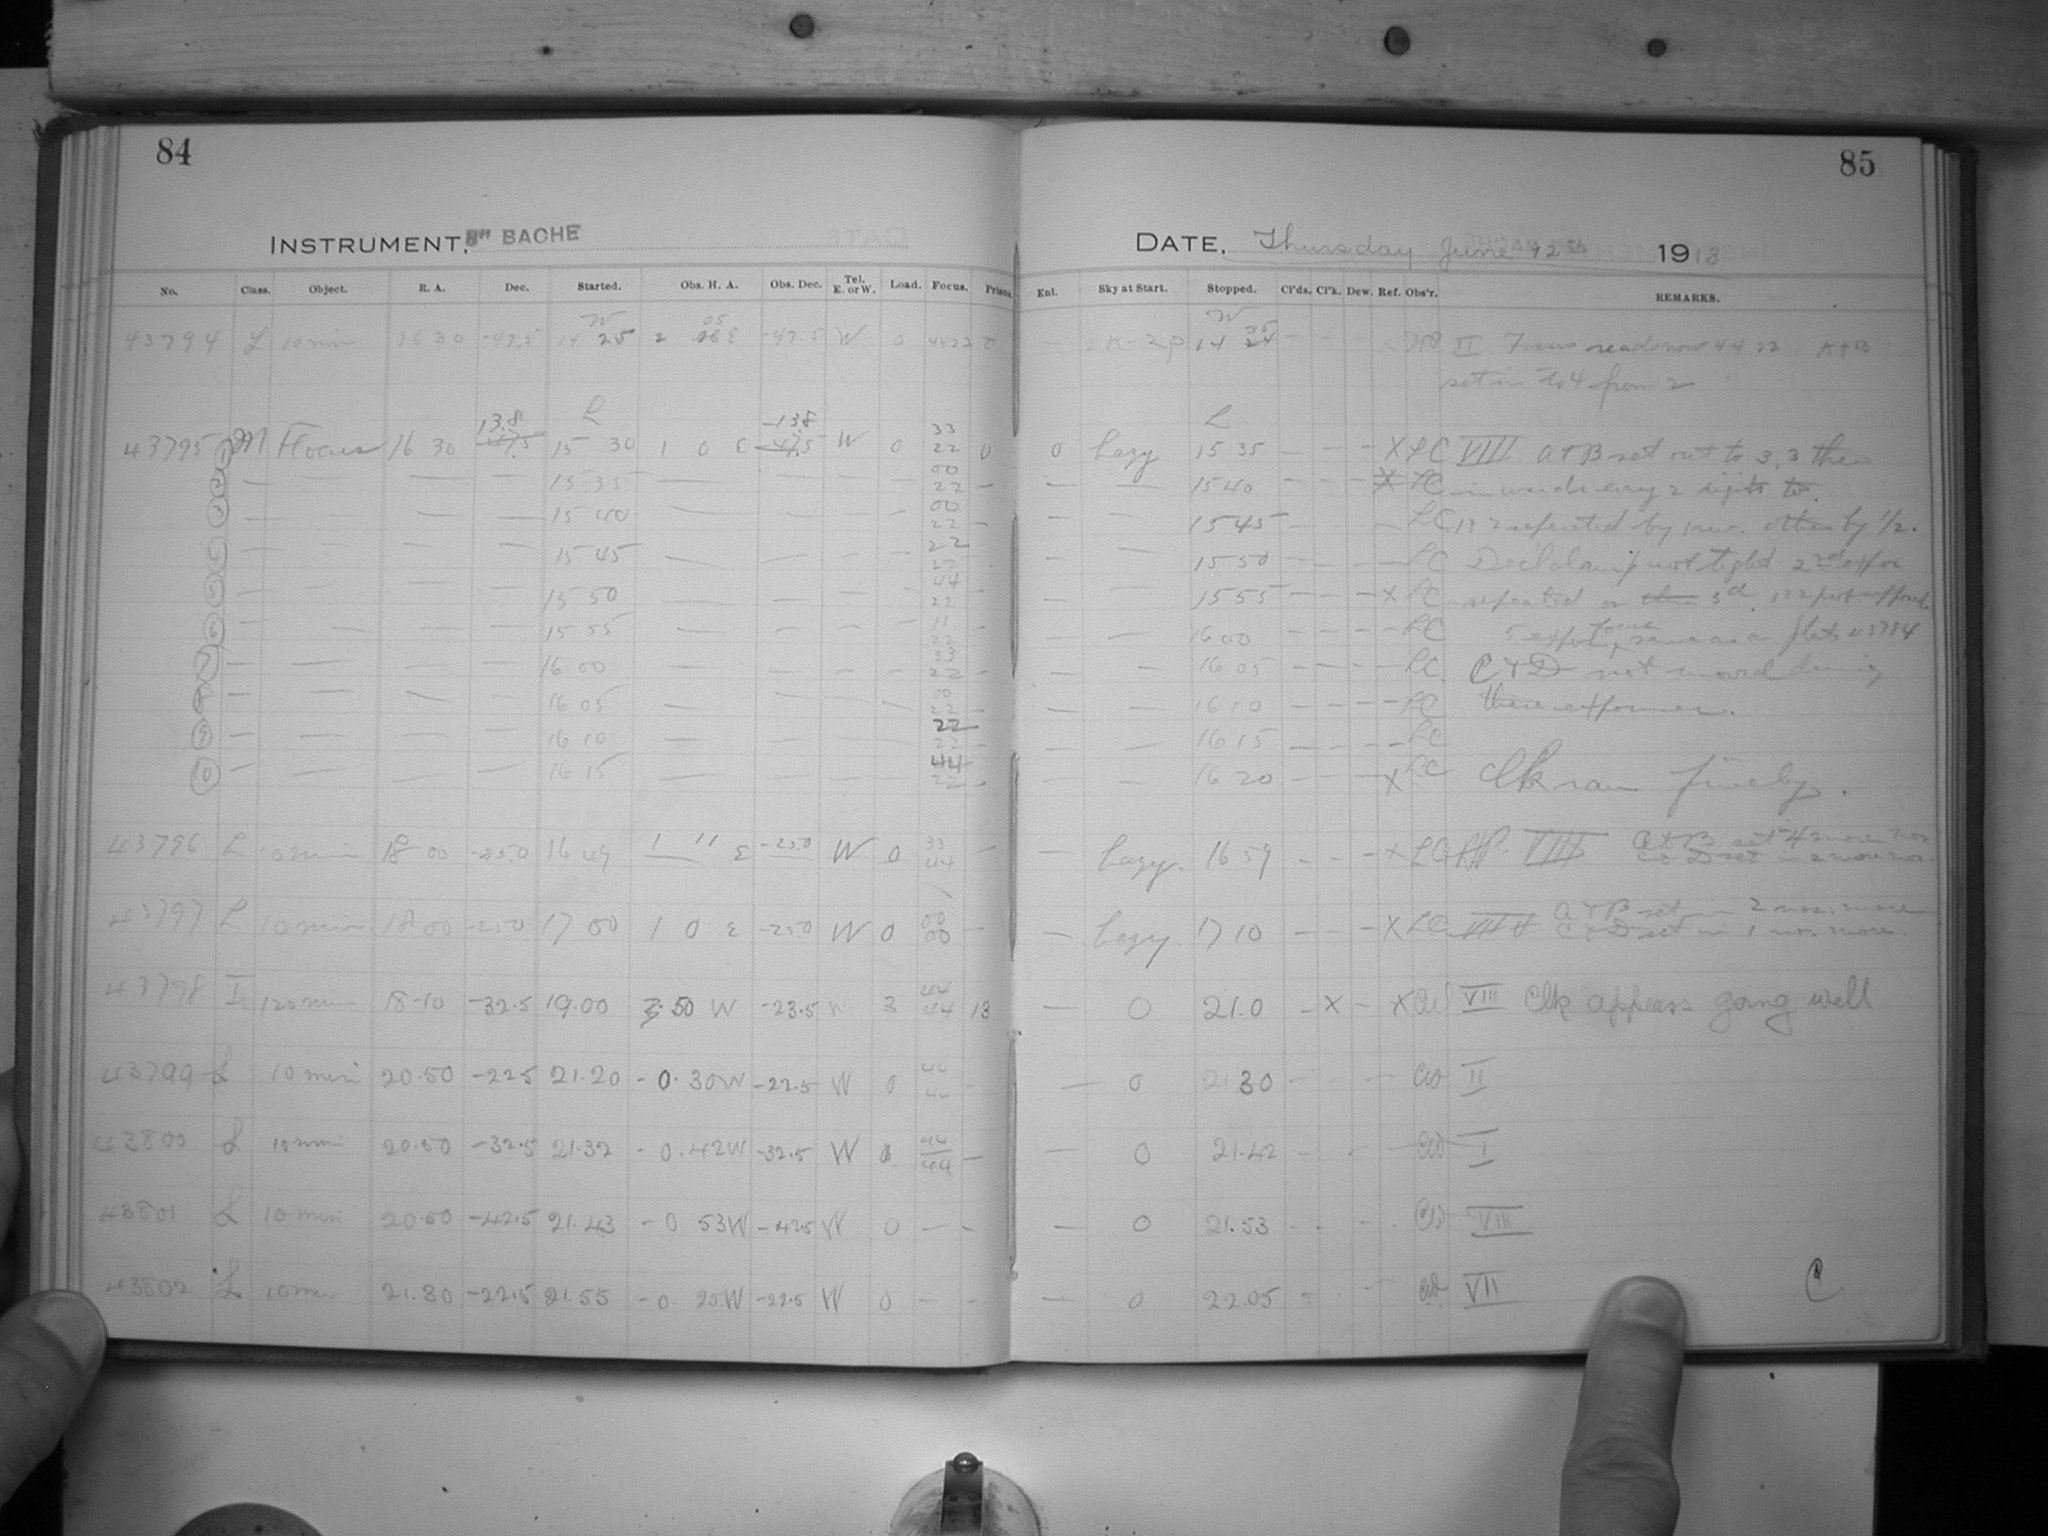 84
85
INSTRUMENT, 8" BACHE
DATE, Thursday June 12th 1913
No. Class. Object. R. A. Dec. Started. Obs. H. A. Obs. Dec. Tel. E. or W. Load. Focus. Prism. Enl. Sky at Start. Stopped. Cl'ds. Cl'k. Dew. Ref. Obs'r. REMARKS.
43794 L 10 min 16 30 -47.5 14 25 2 05 E -47.5 W 0 4422 0 — 14 35 II Focus reads now 44 22 A+B
set in to 4 from 2
43795 1 M Focus 16 30 13.8 15 30 1 0 E -13.8 W 0 33 22 0 0 hazy 15 35 — — — X LC VIII A+B set out to 3,3 then
2 — — — — 15 35 — 00 22 — — — 15 40 X LC inwards every 2 digits to
3 — — — — 15 40 — 00 22 — — — 15 45 LC 1&2 separated by 1 rev. others by 1/2.
4 — — — — 15 45 — 22 22 — — 15 50 LC Decl clamp not tight 2nd expos
5 — — — — 15 50 — 44 22 — — 15 55 — — — X LC repeated on 3d.
6 — — — — 15 55 — 11 22 — — 16 00 — — — LC 5 expos, focus same as on plate 43794
7 — — — — 16 00 — 33 22 — — 16 05 — — — LC C+D not moved during
8 — — — — 16 05 — 00 22 — — 16 10 — — — LC these exposures.
9 — — — — 16 10 — 22 22 — — 16 15 — — — LC
10 — — — — 16 15 — 44 22 — — 16 20 — — X LC Clk ran finely.
43796 L 10 min 18 00 -25.0 16 49 1 11 E -25.0 W 0 33 44 — — hazy. 16 59 — — — X LC VIII A+B set 4 more nos. C+D set in 2 more nos.
43797 L 10 min 18 00 -25.0 17 00 1 0 E -25.0 W 0 00 00 — — hazy. 17 10 — — — X LC A+B set in 2 nos. more C+D set in 1 no. more.
43798 I 120 min 18.10 -32.5 19.00 3.50 W -23.5 W 3 44 44 13 — 0 21.0 — X — X VIII Clk appears going well
43799 L 10 min 20.50 -22.5 21.20 - 0.30W -22.5 W 0 44 44 — — 0 21 30 CW II
43800 L 10 min 20.50 -32.5 21.32 - 0.42W -32.5 W 0 44 44 — — 0 21.42 CW I
43801 L 10 min 20.50 -42.5 21.43 - 0 53W -42.5 W 0 — — — 0 21.53 CW VIII
43802 L 10 min 21.30 -22.5 21.55 - 0 25W -22.5 W 0 — — — 0 22.05 CW VII